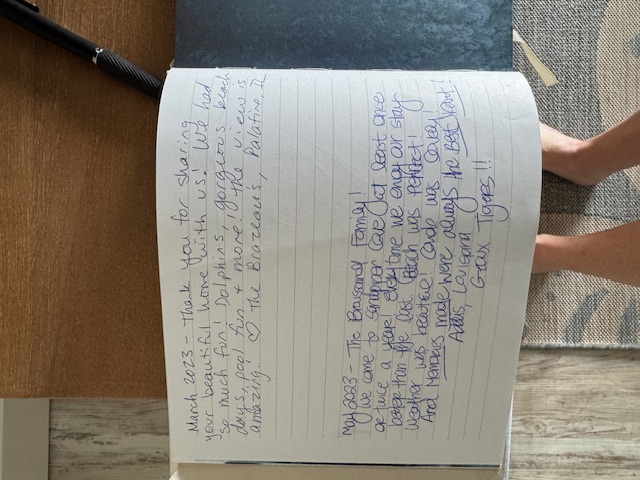 March 2023 - Thank you for sharing
your beautiful home with us! We had
so much fun! Dolphins, gorgeous beach
days, pool fun & more! The view is
amazing. ♡ The Brazeau's, Palatine, IL
May 2023 - The Broussard Family!
We come to Sandpiper Cove at least once
or twice a year! Everytime we enjoy our stay
better than the last. Beach was perfect!
Weather was beautiful! Condo was lovely!
And Memories made were always the Best Part!
Addis, Louisiana
Geaux Tigers!!